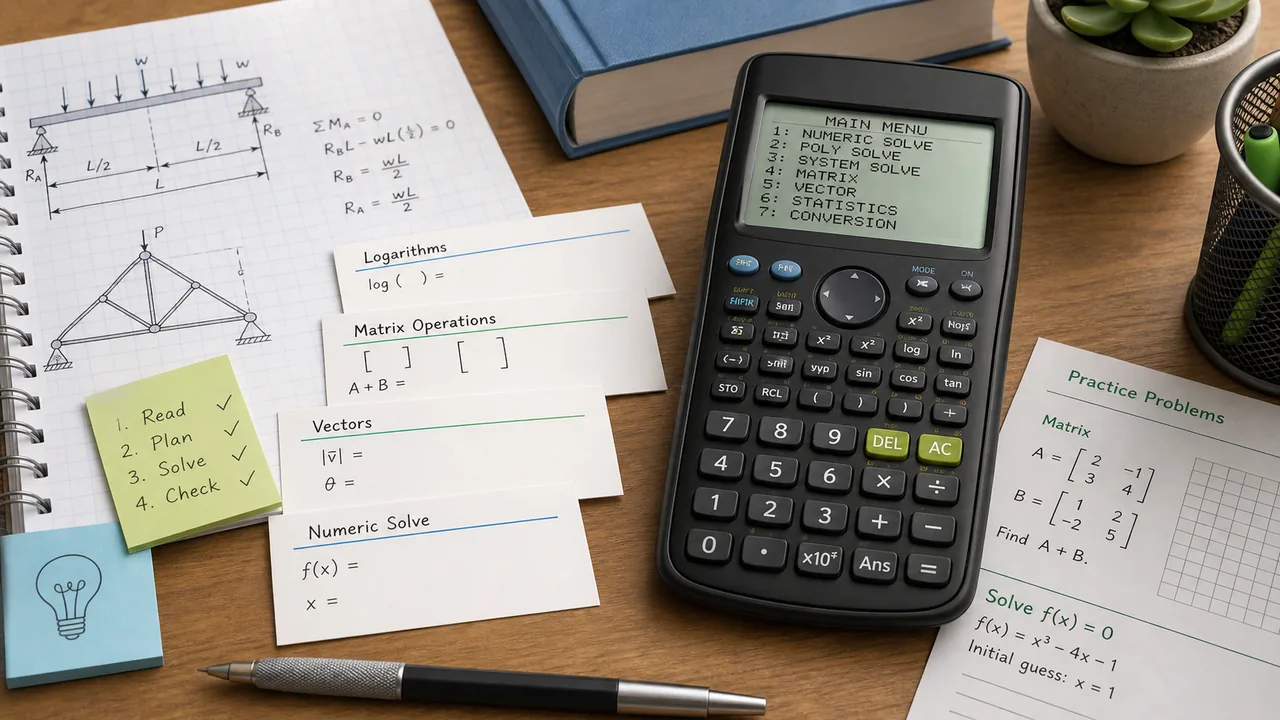 W
W
R_A
R_B
L/2
L/2
L
ΣM_A = 0
R_B L - wL(½) = 0
R_B = wL/2
R_A = wL/2
P
Logarithms
log ( ) =
Matrix Operations
[ ] [ ]
A + B =
Vectors
|v̄| =
θ =
Numeric Solve
f(x) =
x =
1. Read ✓
2. Plan ✓
3. Solve ✓
4. Check ✓
MAIN MENU
1: NUMERIC SOLVE
2: POLY SOLVE
3: SYSTEM SOLVE
4: MATRIX
5: VECTOR
6: STATISTICS
7: CONVERSION
MODE ON
x²
x² x² log ln
(−) sin cos tan
STO RCL ( ) ) +
7 8 9 DEL AC
4 5 6 × ÷
1 2 3 + −
0 · Ans =
Practice Problems
Matrix
A = [2 -1
3 4]
B = [1 2
-2 5]
Find A + B.
Solve f(x) = 0
f(x) = x³ − 4x − 1
Initial guess: x = 1